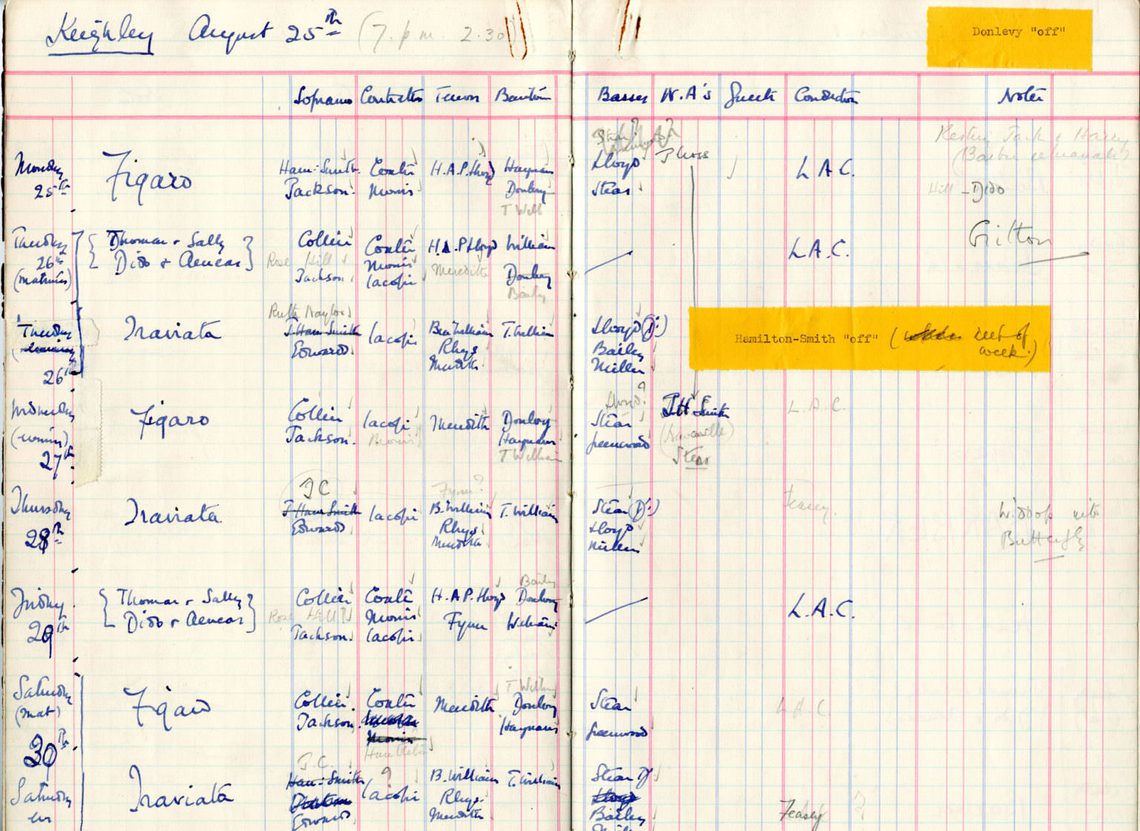 Keighley August 25th (7 p.m. 2.30)
Donlevy "off"
Soprano Contralto Tenor Baritone Basses W.A's Guests Conductor Notes
Monday 25th
Figaro
Ham: Smith
Jackson
Coates
Morris
H.A.P. Lloyd
Haymans
Donlevy
T Will
Lloyd
Stear
L.A.C.
Hill - Dido
Tuesday 26th (matinee)
{ Thomas + Sally
Dido + Aeneas }
Collier
Rose Hill
Jackson
Coates
Morris
Iacopi
H.A.P Lloyd
Meredith
William
Donlevy
Bailey
L.A.C.
Tuesday
26th
Traviata
Ruth Naylor
J Ham Smith
Edwards
Iacopi
Ben William
Rhys
Meredith
T. William
Lloyd (D:)
Bailey
Miller
Hamilton-Smith "off" ( rest of week.)
Wednesday
(evening)
27th
Figaro
Collier
Jackson
Iacopi
Morris
Meredith
Donlevy
Haymans
T William
Lloyd?
Stear
Greenwood
J H Smith
Stear
L.A.C
Thursday
28th
Traviata
J C
J Ham Smith
Edwards
Iacopi
Fynn?
B. William
Rhys
Meredith
T. William
Stear (D:)
Lloyd
Miller
Feasey
Butterfly
Friday
29th
{ Thomas + Sally
Dido + Aeneas }
Collier
Rose Hill
Jackson
Coates
Morris
Iacopi
H.A.P. Lloyd
Fynn
Bailey
Donlevy
William
L.A.C.
Saturday
(mat)
30th
Figaro
Collier
Jackson
Coates
Morris
Meredith
T William
Donlevy
Haymans
Stear
Greenwood
L A C
Saturday
ev
Traviata
J.C.
Ham: Smith
Edwards
?
Iacopi
B. William
Rhys
Meredith
T. William
Stear D
Lloyd
Bailey
Feasey ?